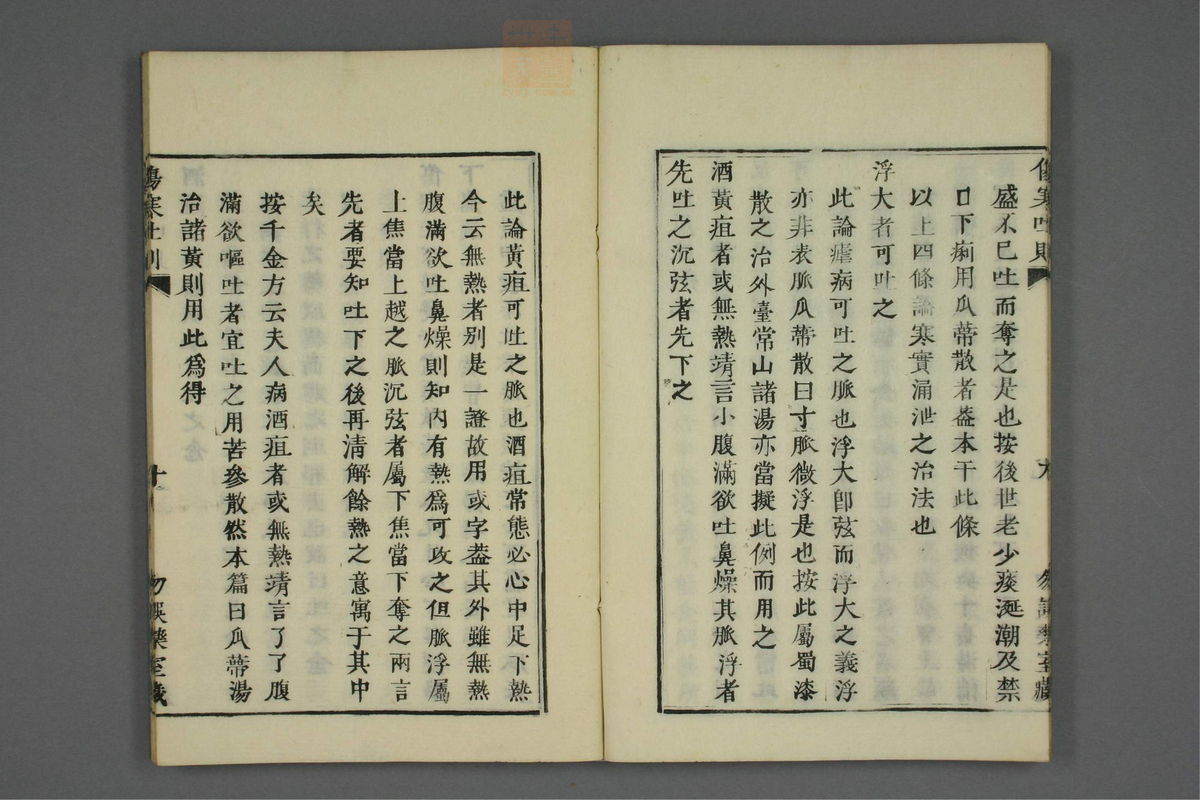 盛不已吐而奪之是也按後世老少痰涎潮及禁
口下痢用瓜蒂散者葢本干此條
以上四條論寒實涌泄之治法也
浮大者可吐之
此論瘧病可吐之脈也浮大卽弦而浮大之義浮
亦非表脈瓜蒂散曰寸脈微浮是也按此屬蜀漆
散之治外臺常山諸湯亦當擬此例而用之
酒黃疸者或無熱靖言小腹滿欲吐鼻燥其脈浮者
先吐之沉弦者先下之
此論黃疸可吐之脈也酒疸常態必心中足下熱
今云無熱者別是一證故用或字葢其外雖無熱
腹滿欲吐鼻燥則知內有熱爲可攻之但脈浮屬
上焦當上越之脈沉弦者屬下焦當下奪之兩言
先者要知吐下之後再清解餘熱之意寓于其中
矣
按千金方云夫人病酒疸者或無熱靖言了了腹
滿欲嘔吐者宜吐之用苦參散然本篇曰瓜蒂湯
治諸黃則用此爲得
傷寒吐則
十